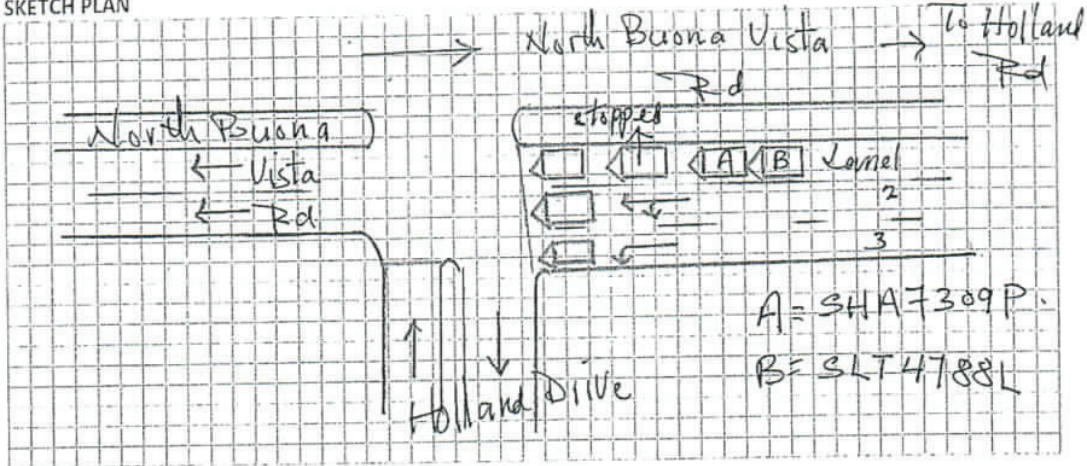 SKETCH PLAN
North Buona Vista Rd
To Holland Rd
North Buona Vista Rd
stopped
A B Lane1
2
3
A = SHA7309P.
B = SLT4788L
Holland Drive